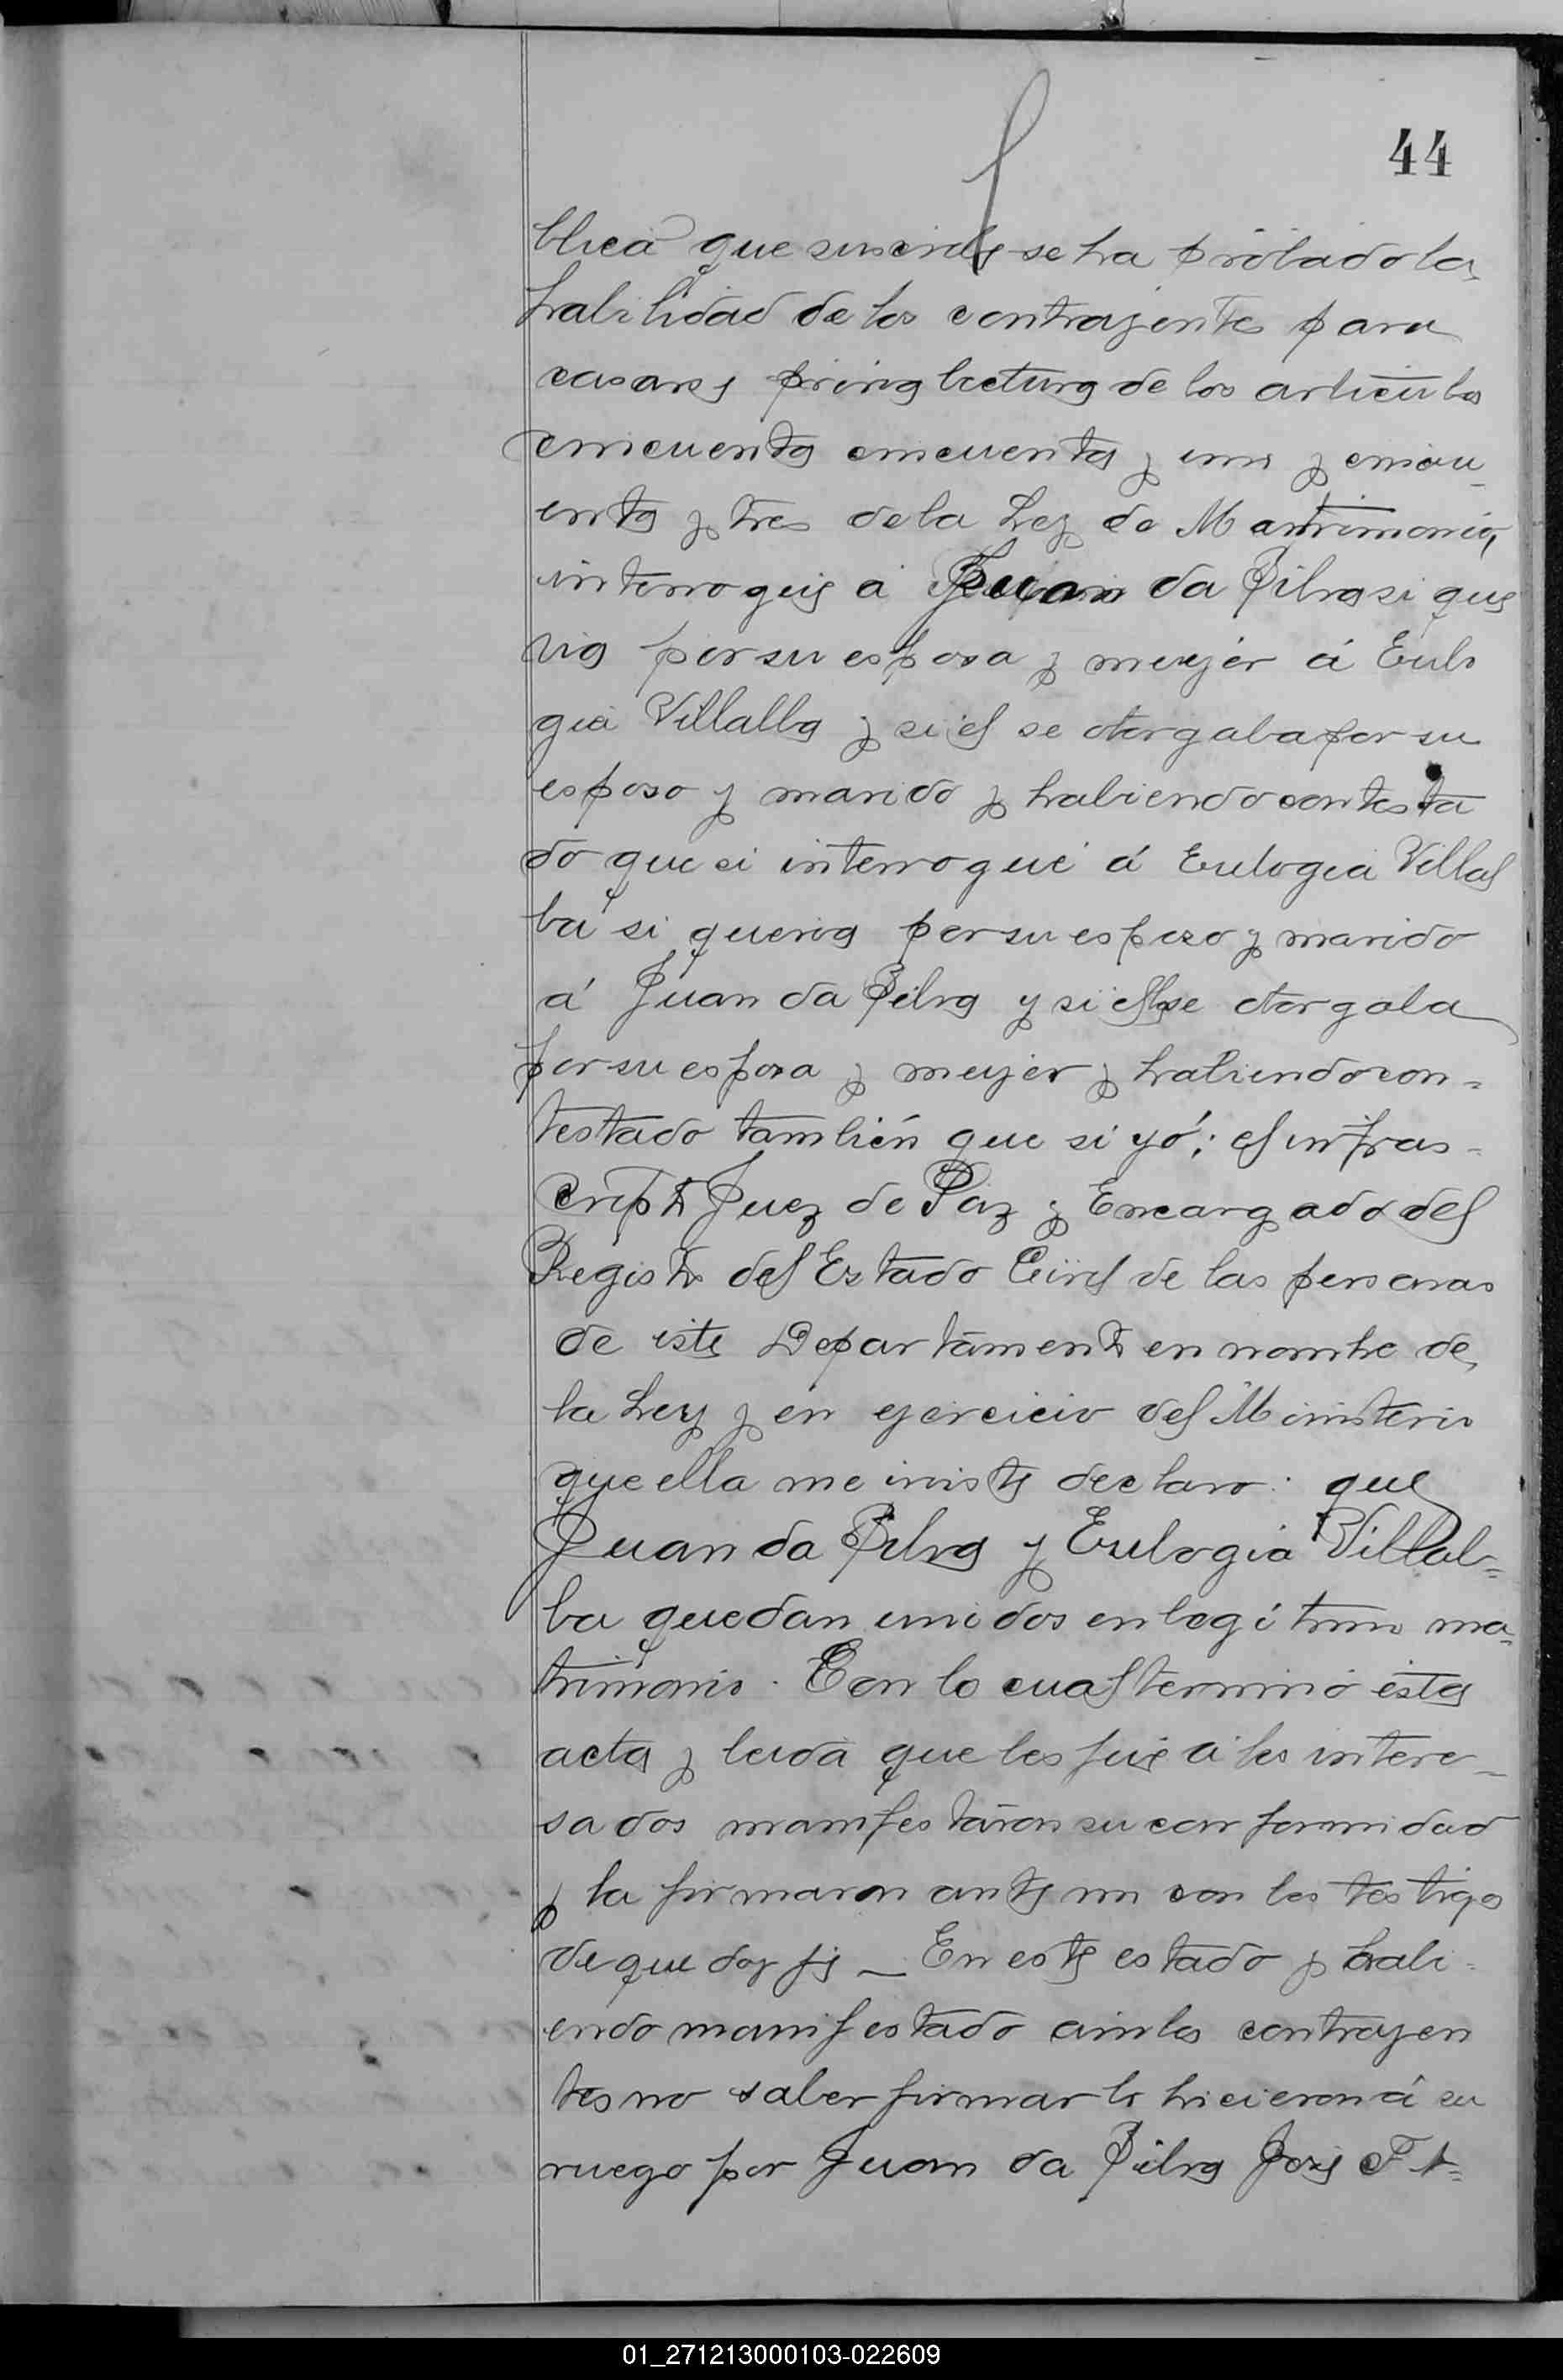 44
blica que se ha probado la
habilidad de los contrayentes para
casarse prévia lectura de los articulos
cincuenta cincuenta y uno y cincu-
enta y tres de la Ley de Matrimonio,
interrogué á Juan da Silva si que
ria por su esposa y mujer á Eulo
gia Villalba y si él se otorgaba por su
esposo y marido y habiendo contesta
do que si interrogué á Eulogia Villal
ba si queria por su esposo y marido
á Juan da Silva y si ella se otorgaba
por su esposa y mujer y habiendo con-
testado también que si yó; el infras-
cripto Juez de Paz y Encargado del
Registro del Estado Civil de las personas
de este Departamento en nombre de
la Ley y en ejercicio del Ministerio
que ella me inviste declaro: que
Juan da Silva y Eulogia Villal-
ba quedan unidos en legítimo ma-
trimonio. Con lo cual terminó esta
acta y leida que les fué á los intere-
sados manifestaron su conformidad
y la firmaron ante mi con los testigos
de que doy fé — En este estado y habi-
endo manifestado ambos contrayen
tes no saber firmar lo hicieron á su
ruego por Juan da Silva José
01_271213000103-022609